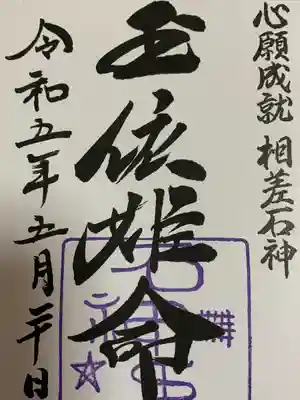 心願成就 相差石神
玉依姫命
令和五年五月二十日